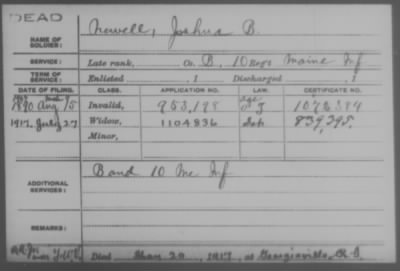 DEAD
NAME OF SOLDIER: Newell, Joshua B.
SERVICE: Late rank, Co. B, 10 Reg't Maine Inf
TERM OF SERVICE: Enlisted , 1 Discharged , 1
DATE OF FILING. CLASS. APPLICATION NO. LAW. CERTIFICATE NO.
1890 Aug 15 Invalid, 953,198
1917 July 27 Widow, 1104836 839,395
Minor,
ADDITIONAL SERVICES: Band 10 Me Inf
REMARKS:
Died 1917, at Georgiaville, R.I.